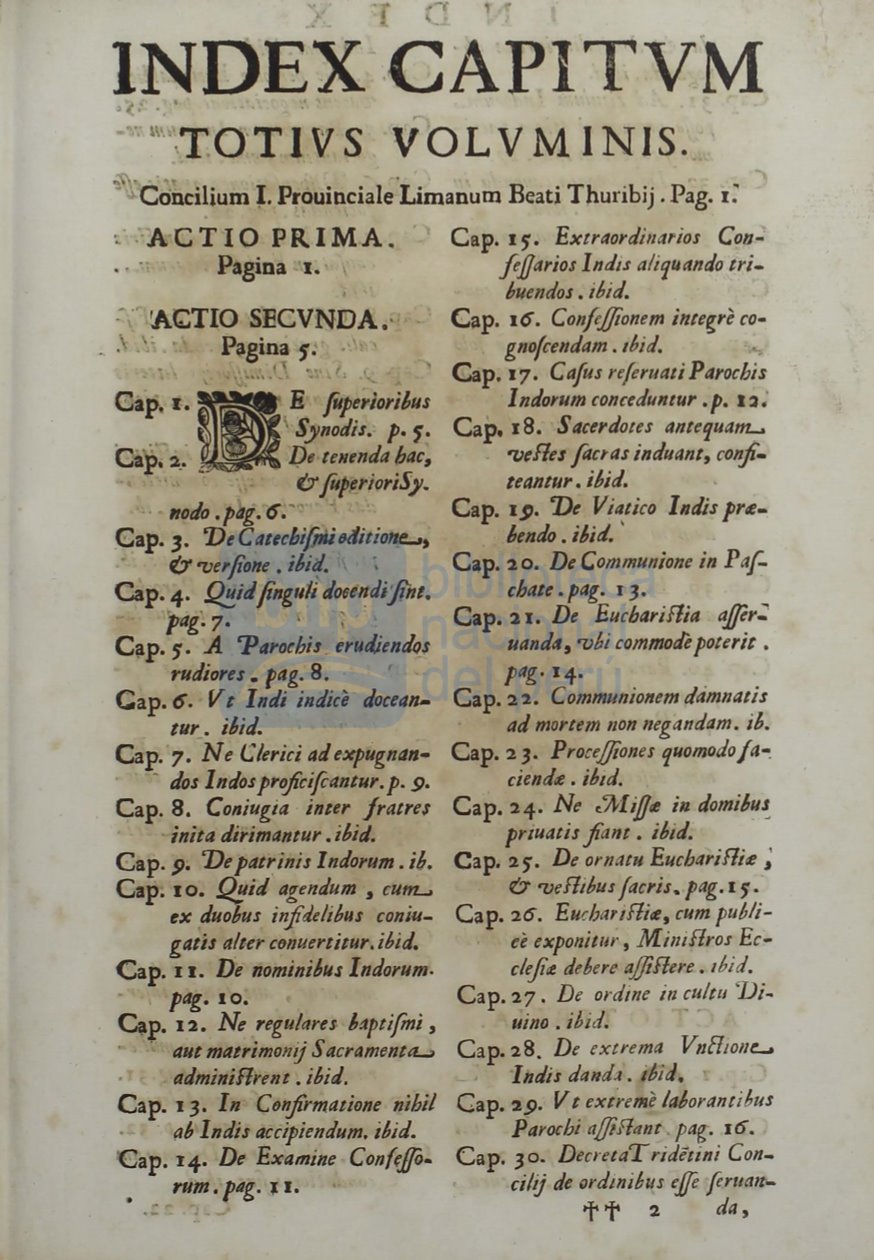 INDEX CAPITVM
TOTIVS VOLVMINIS.
Concilium I. Prouinciale Limanum Beati Thuribij. Pag. 1.
ACTIO PRIMA.
Pagina 1.
ACTIO SECVNDA.
Pagina 5.
Cap. 1. DE ſuperioribus
Synodis. p. 5.
Cap. 2. De tenenda hac,
& ſuperiori Sy-
nodo. pag. 6.
Cap. 3. De Catechiſmi editione,
& verſione. ibid.
Cap. 4. Quid ſinguli docendi ſint.
pag. 7.
Cap. 5. A Parochis erudiendos
rudiores. pag. 8.
Cap. 6. Vt Indi indicè docean-
tur. ibid.
Cap. 7. Ne Clerici ad expugnan-
dos Indos proficiſcantur. p. 9.
Cap. 8. Coniugia inter fratres
inita dirimantur. ibid.
Cap. 9. De patrinis Indorum. ib.
Cap. 10. Quid agendum, cum
ex duobus infidelibus coniu-
gatis alter conuertitur. ibid.
Cap. 11. De nominibus Indorum.
pag. 10.
Cap. 12. Ne regulares baptiſmi,
aut matrimonij Sacramenta
adminiſtrent. ibid.
Cap. 13. In Confirmatione nihil
ab Indis accipiendum. ibid.
Cap. 14. De Examine Confeſſo-
rum. pag. 11.
Cap. 15. Extraordinarios Con-
feſſarios Indis aliquando tri-
buendos. ibid.
Cap. 16. Confeſſionem integrè co-
gnoſcendam. ibid.
Cap. 17. Caſus reſeruati Parochis
Indorum conceduntur. p. 12.
Cap. 18. Sacerdotes antequam
veſtes ſacras induant, confi-
teantur. ibid.
Cap. 19. De Viatico Indis præ-
bendo. ibid.
Cap. 20. De Communione in Paſ-
chate. pag. 13.
Cap. 21. De Euchariſtia aſſer-
uanda, vbi commodè poterit.
pag. 14.
Cap. 22. Communionem damnatis
ad mortem non negandam. ib.
Cap. 23. Proceſſiones quomodo fa-
ciendæ. ibid.
Cap. 24. Ne Miſſæ in domibus
priuatis fiant. ibid.
Cap. 25. De ornatu Euchariſtiæ,
& veſtibus ſacris. pag. 15.
Cap. 26. Euchariſtiæ, cum publi-
cè exponitur, Miniſtros Ec-
cleſiæ debere aſſiſtere. ibid.
Cap. 27. De ordine in cultu Di-
uino. ibid.
Cap. 28. De extrema Vnctione
Indis danda. ibid.
Cap. 29. Vt extremè laborantibus
Parochi aſſiſtant. pag. 16.
Cap. 30. Decreta Tridētini Con-
cilij de ordinibus eſſe ſeruan-
†† 2 da,
biblioteca